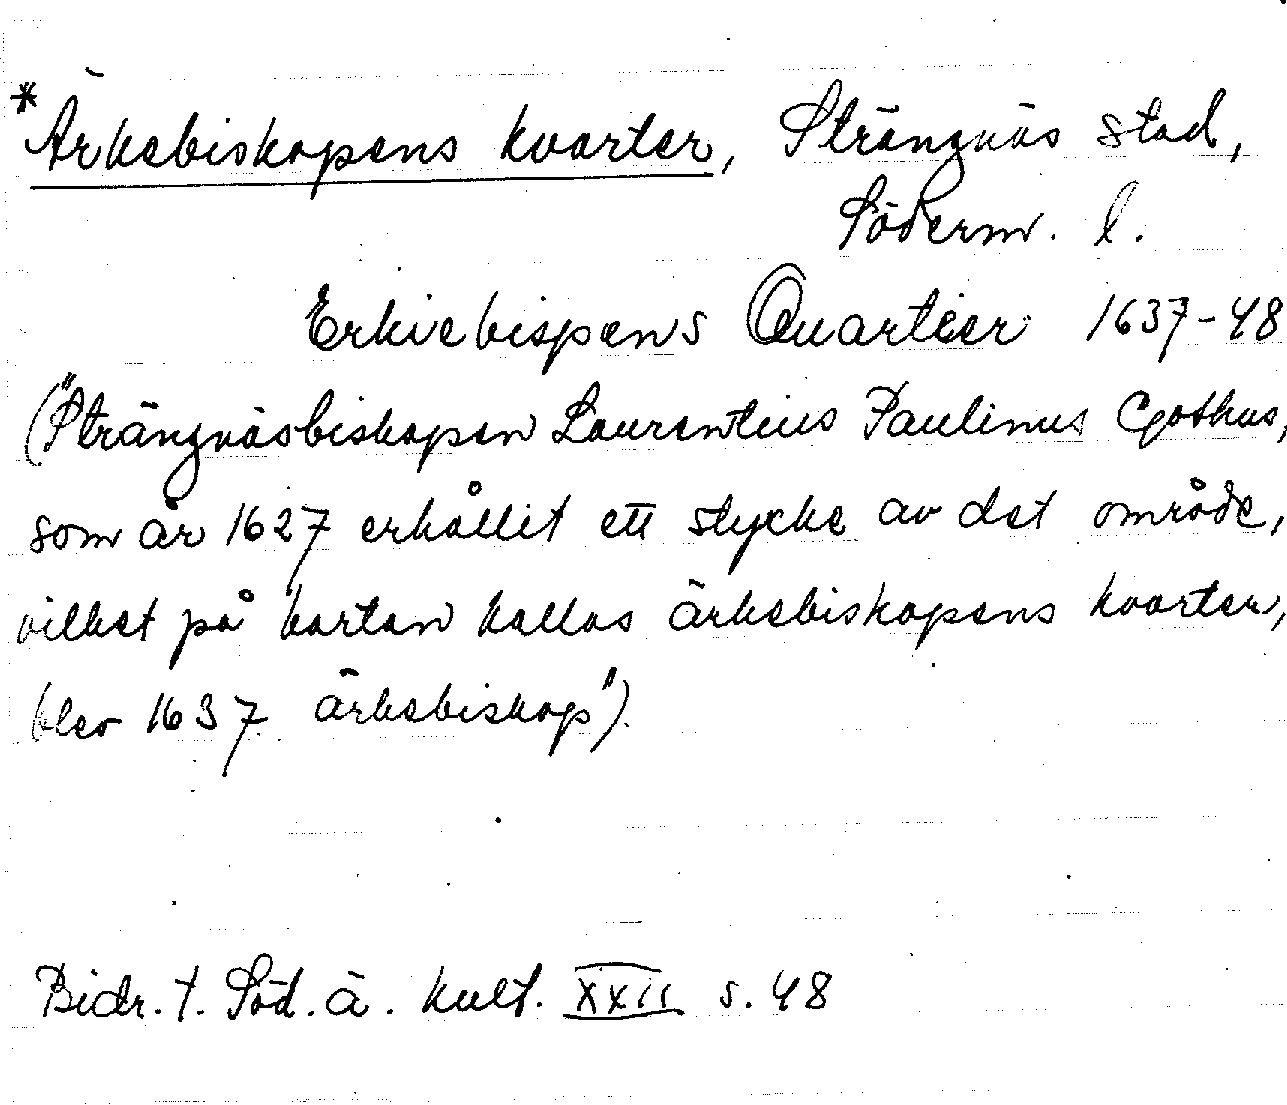 *Ärkebiskopens kvarter, Strängnäs stad,
Söderm. l.
Erkiebispens Quartier 1637-48
("Strängnäsbiskopen Laurentius Paulinus Gothus,
som år 1627 erhållit ett stycke av det område,
vilket på kartan kallas ärkebiskopens kvarter,
blev 1637 ärkebiskop").
Bidr. t. Söd. ä. kult. XXII s. 48